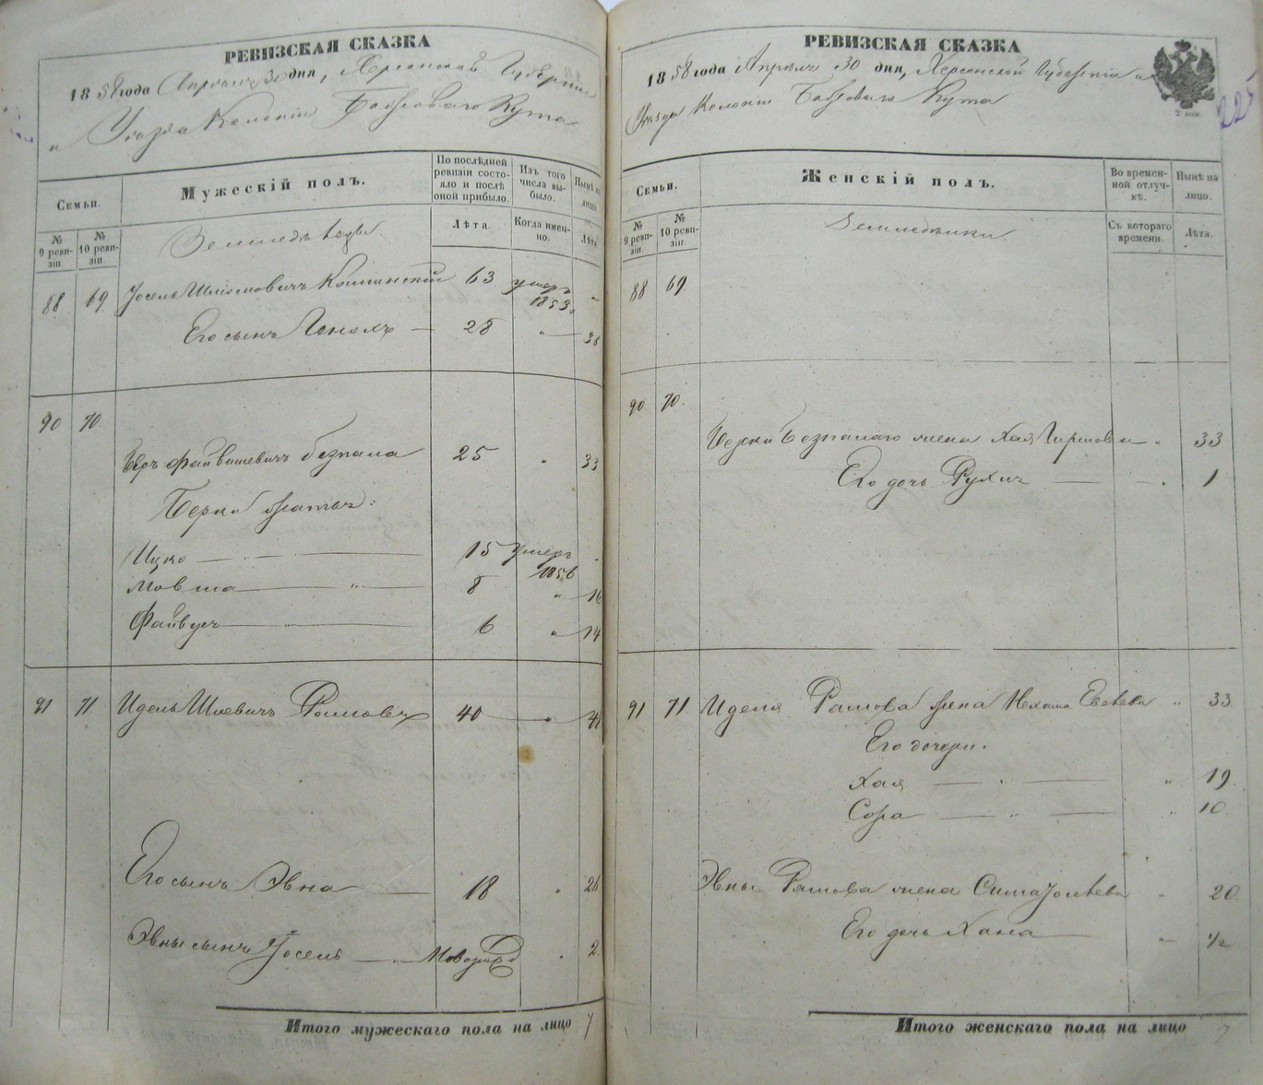 РЕВИЗСКАЯ СКАЗКА
1858 года Апреля 30 дня, Херсонской Губернии
и Уезда Колонии Бобрового Кута
Семьи.
№ 9 ревизіи.
№ 10 ревизіи.
Мужескій полъ.
По послѣдней ревизіи состояло и послѣ оной прибыло.
Лѣта.
Изъ того числа выбыло.
Когда именно.
Нынѣ на лицо.
Лѣта.
Земледельцы.
88 69 Іосель Шліомовичъ 63 умеръ 1853 "
Его сынъ Генохъ — 28 "
90 70.
Беръ Файвишевичъ Безпала 25 " 33
Берки братья:
Ицко — 15 умеръ 1856 "
Мовша — " — 8 " 16
Файвуш — " — 6 " 14
91 71 Идель Шлевичъ Рашовъ 40 "
Его сынъ Эвна — 18 " 26
Эвны сынъ Іосель — Новорожд " 2
Итого мужескаго пола на лицо 7
РЕВИЗСКАЯ СКАЗКА
1858 года Апреля 30 дня, Херсонской Губерніи и
Уезда Колоніи Бобрового Кута
2 коп.
225
Семьи.
№ 9 ревизіи.
№ 10 ревизіи.
Женскій полъ.
Во временной отлучкѣ.
Съ котораго времени.
Нынѣ на лицо.
Лѣта.
88 69
90 70.
Безпалаго жена Хая Гиршова " 33
Его дочь Рухля — 1
91 71 Иделя Рашова жена Нехама " 33
Его дочери.
Хая — " — " 19
Сора — " — " 10
Эвны Рашова жена Сима " 20
Его дочь Хана — " 1/2
Итого женскаго пола на лицо 7